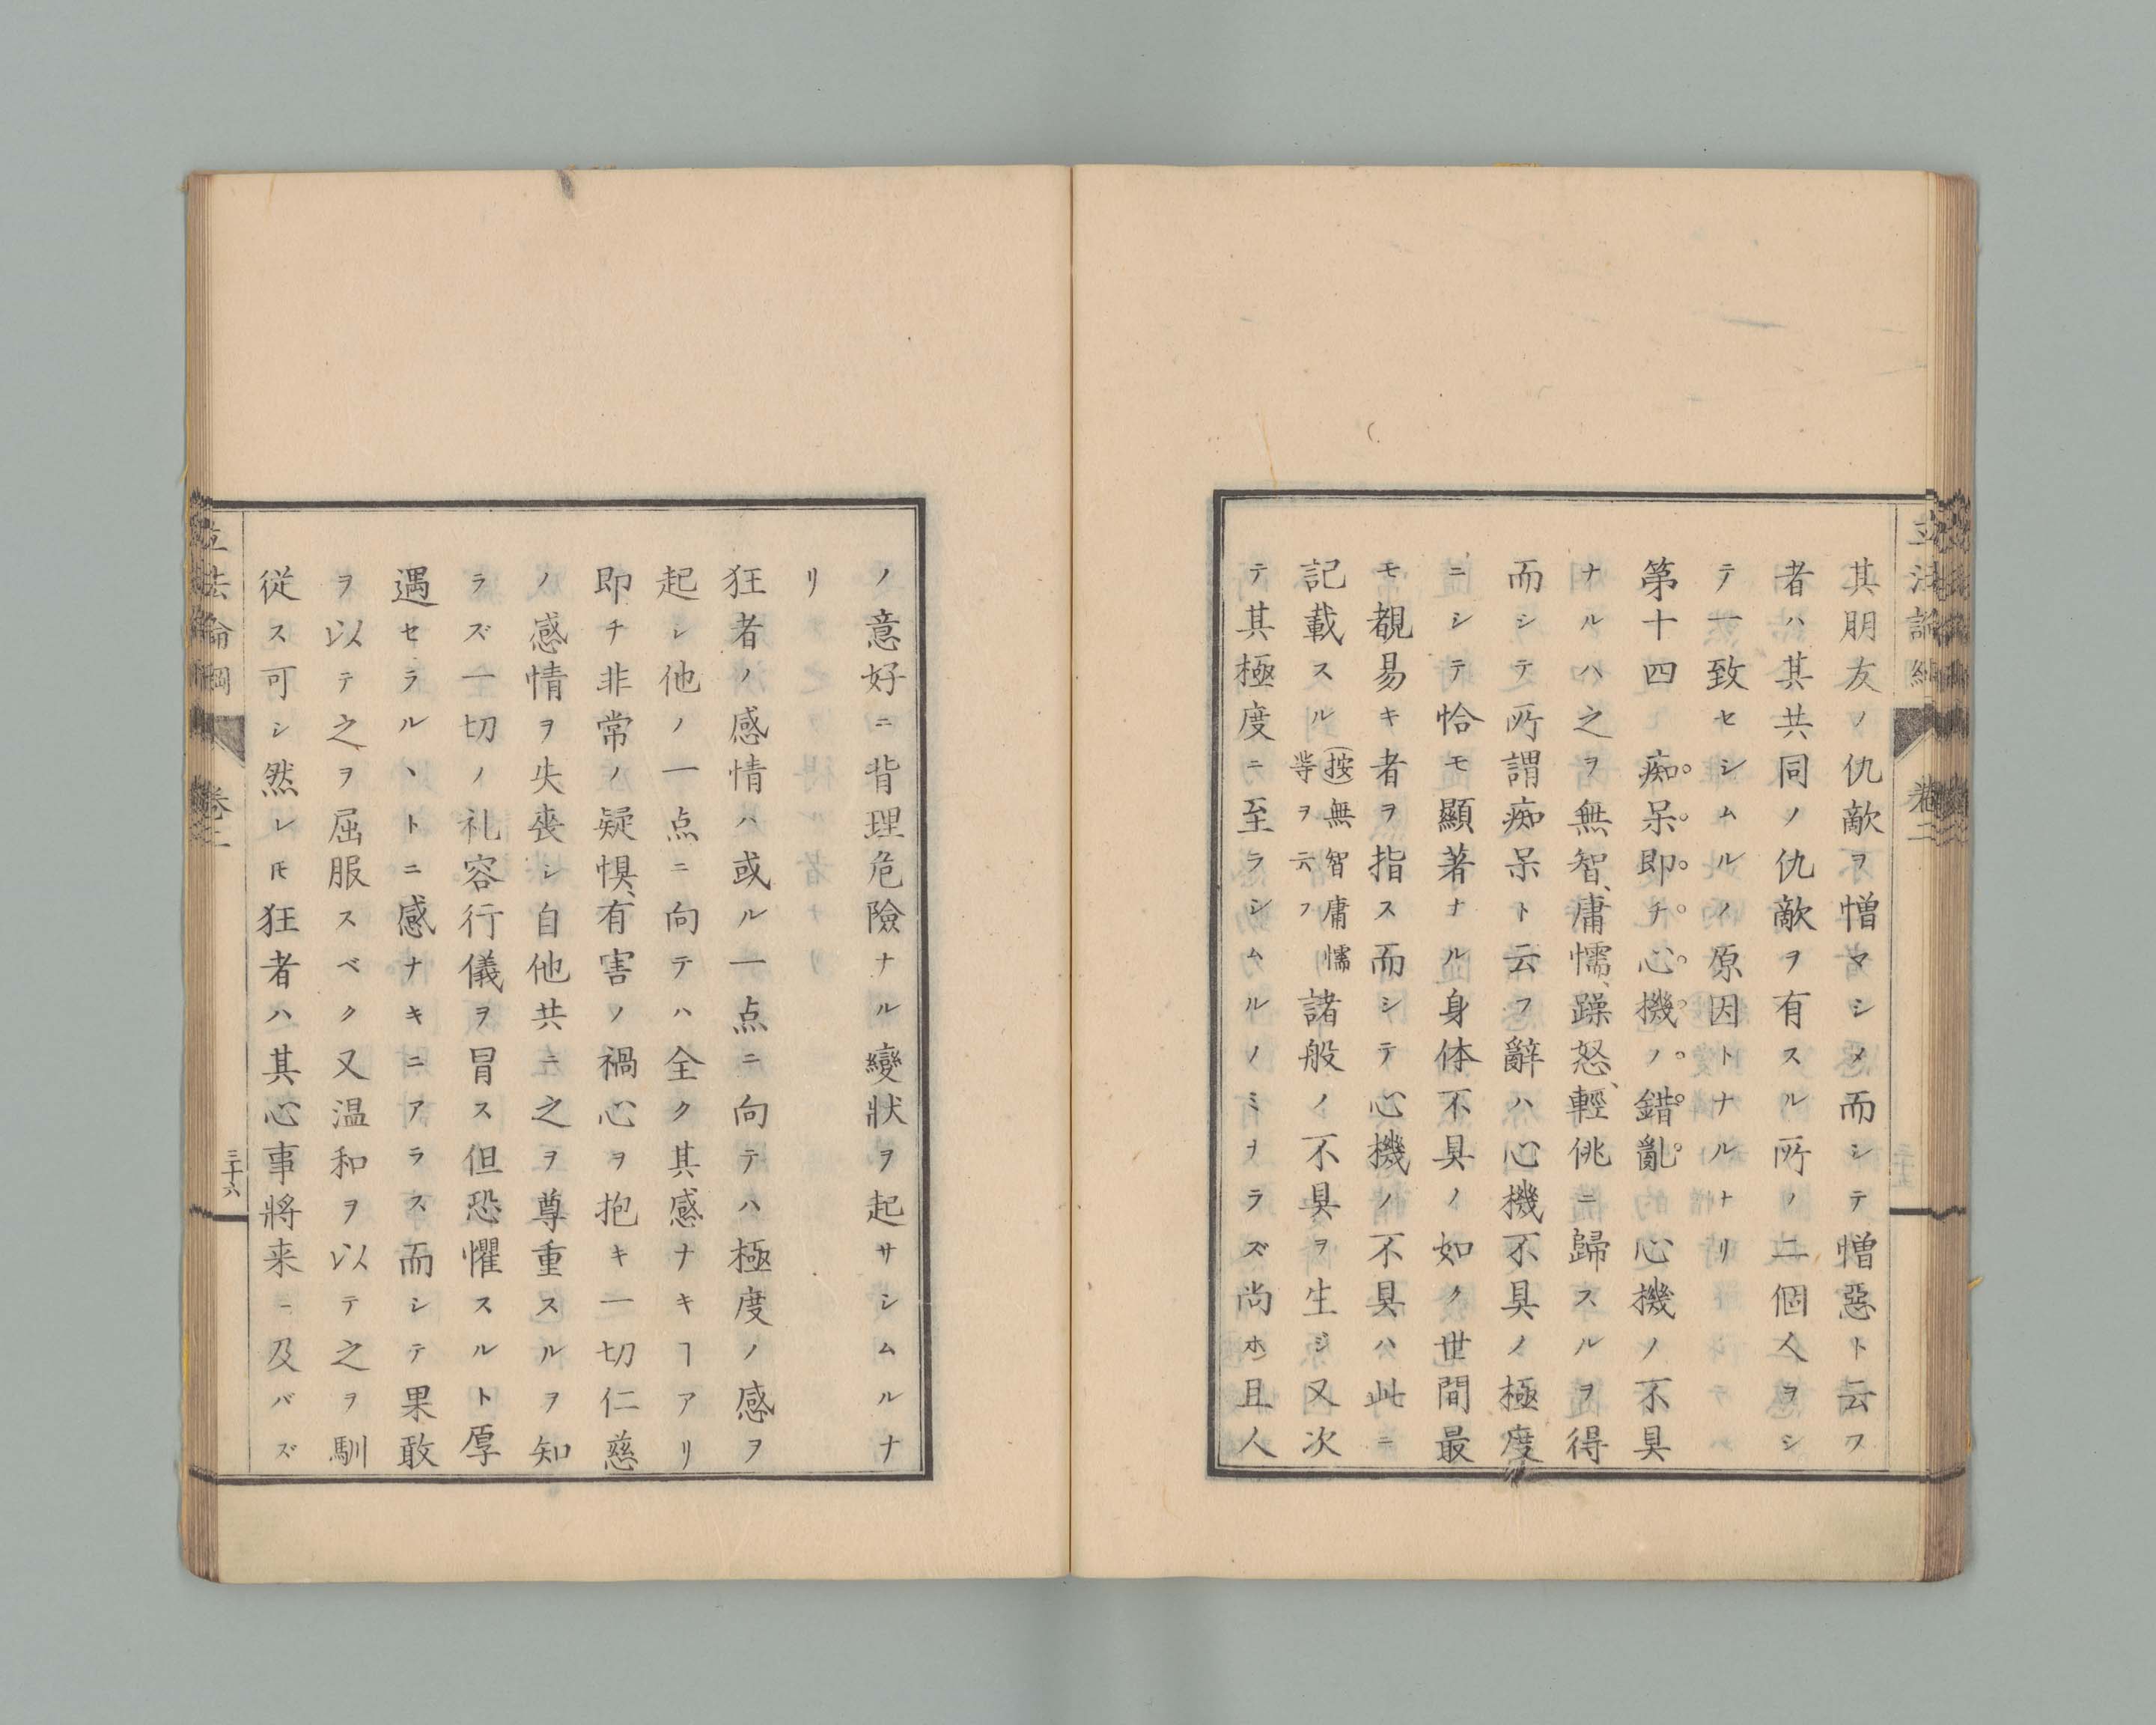 其朋友ノ仇敵ヲ憎マシメ而シテ憎惡ト云フ
者ハ其共同ノ仇敵ヲ有スル所ノ二個人ヲシ
テ一致セシムルノ原因トナルナリ
第十四 痴呆即チ心機ノ錯亂 心機ノ不具
ナルハ之ヲ無智、庸懦、躁怒、輕佻ニ歸スルヲ得
而シテ所謂痴呆ト云フ辭ハ心機不具ノ極度
ニシテ恰モ顯著ナル身体不具ノ如ク世間最
モ覩易キ者ヲ指ス而シテ心機ノ不具ハ此ニ
記載スル(按)無智庸懦等ヲ云フ諸般ノ不具ヲ生ジ又次
テ其極度ニ至ラシムルノミナラズ尚ホ且人
立法論綱 卷二
ノ意好ニ背理危險ナル變狀ヲ起サシムルナ
リ
狂者ノ感情ハ或ル一点ニ向テハ極度ノ感ヲ
起シ他ノ一点ニ向テハ全ク其感ナキヿアリ
即チ非常ノ疑惧、有害ノ禍心ヲ抱キ一切仁慈
ノ感情ヲ失喪シ自他共ニ之ヲ尊重スルヲ知
ラズ一切ノ礼容行儀ヲ冒ス但恐懼スルト厚
遇セラルヽトニ感ナキニアラス而シテ果敢
ヲ以テ之ヲ屈服スベク又温和ヲ以テ之ヲ馴
従ス可シ然レ𪜈狂者ハ其心事將来ニ及バズ
立法論綱 卷二 三十六